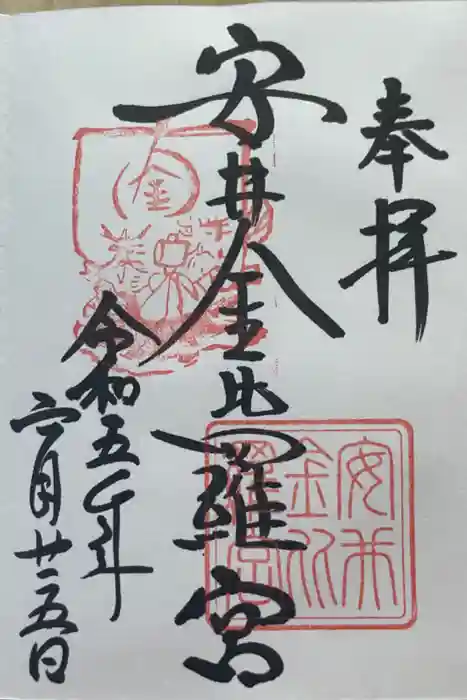 奉拝
安井金比羅宮
令和五年
六月廿五日
金
安井
金比
羅宮